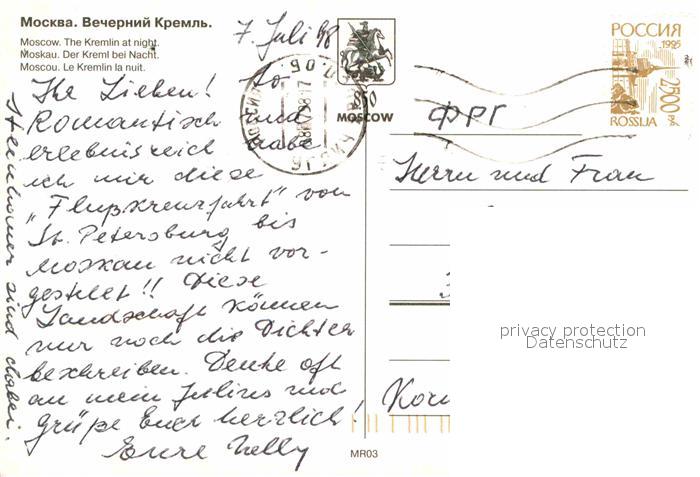 Москва. Вечерний Кремль.
Moscow. The Kremlin at night.
Moskau. Der Kreml bei Nacht.
Moscou. Le Kremlin la nuit.
7. Juli 98
Ihr Lieben! So
Romantisch und
erlebnisreich habe
ich mir diese
„Flußkreuzfahrt" von
St. Petersburg bis
Moskau nicht vor-
gestellt!! Diese
Landschaft können
nur noch die Dichter
beschreiben. Denke oft
an mein Julius und
grüße Euch herzlich!
Eure Nelly
sind dabei.
850
MOSCOW
РОССИЯ
1995
2500
ROSSIJA
ФРГ
Herrn und Frau
privacy protection
Datenschutz
MR03